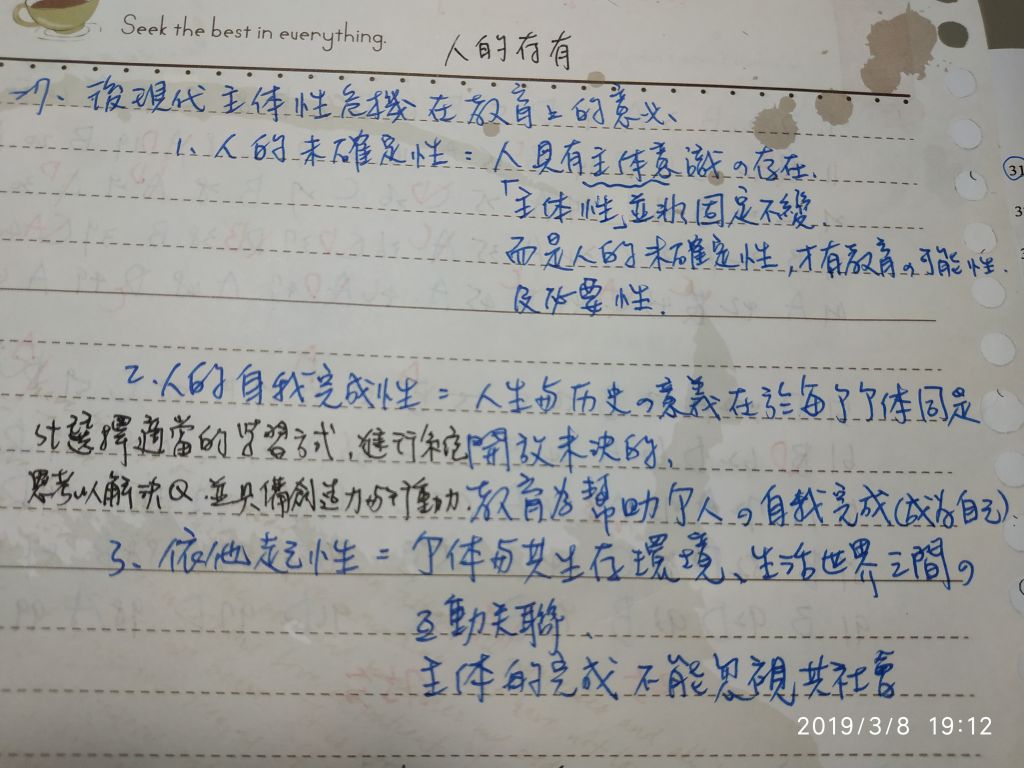 Seek the best in everything.
人的存有
一、後現代主体性危機在教育上的意义、
1、人的未確定性=人具有主体意識の存在、
「主体性」並非固定不變、
而是人的未確定性,才有教育の可能性、
及必要性.
2、人的自我完成性=人生与历史の意義在於每个个体同是
st選擇適當的学習方式,進行
開放未決的、
思考以解決Q.並具備創造力与行動力.
教育為幫助个人の自我完成(成為自己)
3、依他起性=个体与其生存環境、生活世界之間の
互動关聯、
主体的完成不能忽視其社會
31
2019/3/8 19:12